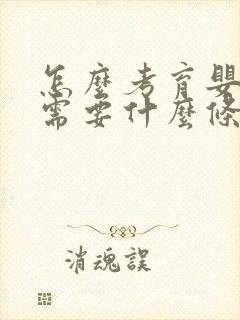 怎麼考育嬰
需要什麼條
消魂誤